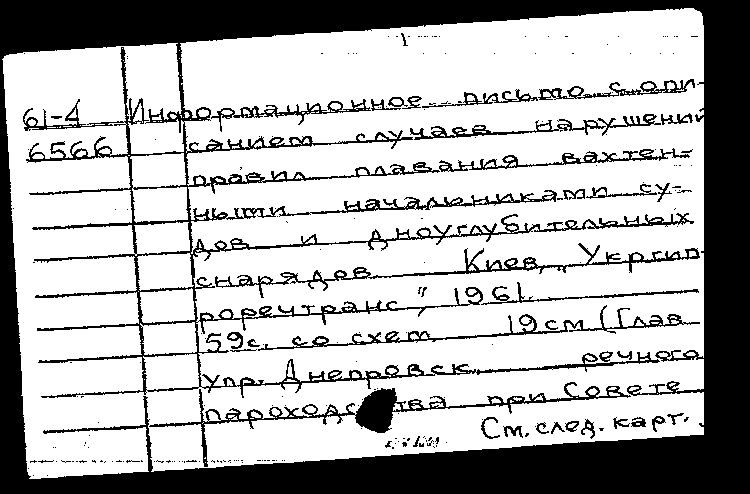 1
61-4 Информационное письмо с опи-
6566 санием случаев нарушений
правил плавания вахтен-
ными начальниками су-
дов и дноуглубительных
снарядов. Киев, "Укргип-
роречтранс", 1961.
59с. со схем. 19см (Глав
Упр. Днепровск. речного
пароходства при Совете
См. след. карт.